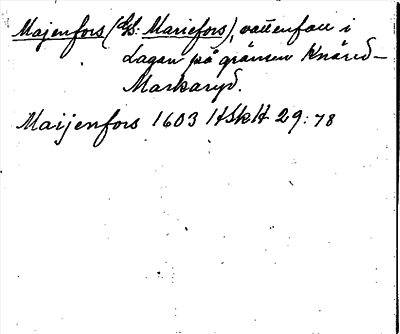 Majenfors (GS: Mariefors), vattenfall i
Lagan på gränsen Knäred-
Markaryd.
Maijenfors 1603 HSkH 29:78